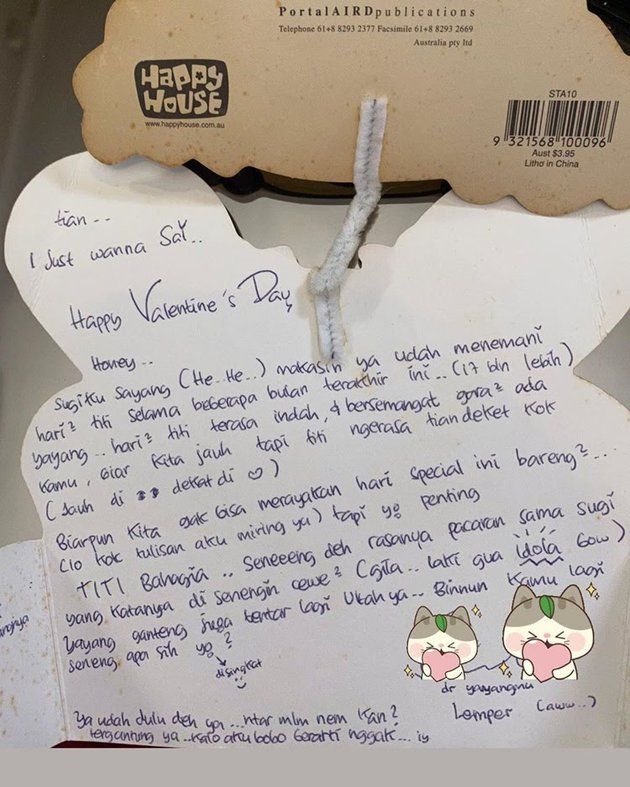 PortalAIRDpublications
Telephone 61+8 8293 2377 Facsimile 61+8 8293 2669
Australia pty ltd
HAPPY
HOUSE
www.happyhouse.com.au
STA10
9 321568 100096
Aust $3.95
Litho in China
tian - -
I Just wanna Sai..
Happy Valentine's Day
Honey - -
Sugiku Sayang (He..He..) makasih ya udah menemani
hari² titi selama beberapa bulan terakhir ini.. (17 bln lebih)
yayang.. hari² titi terasa indah, & bersemangat gara² ada
kamu, biar kita jauh tapi titi ngerasa tian deket kok
(Jauh di dekat di ♡)
Biarpun kita gak bisa merayakan hari special ini bareng²...
(lo kok tulisan aku miring ya) tapi yg penting
TITI Bahagia .. Seneeeng deh rasanya pacaran sama sugi
yang katanya di senengin cewe² (gila.. laki gua idola bow)
yayang ganteng juga bentar lagi Ultah ya.. Binnun kamu lagi
seneng apa sih yg?
disingkat
dr yayangmu
Lemper (aww..)
Ya udah dulu deh ya...ntar mlm nem kan?
tergantung ya..kalo aku bobo berarti nggak... iy